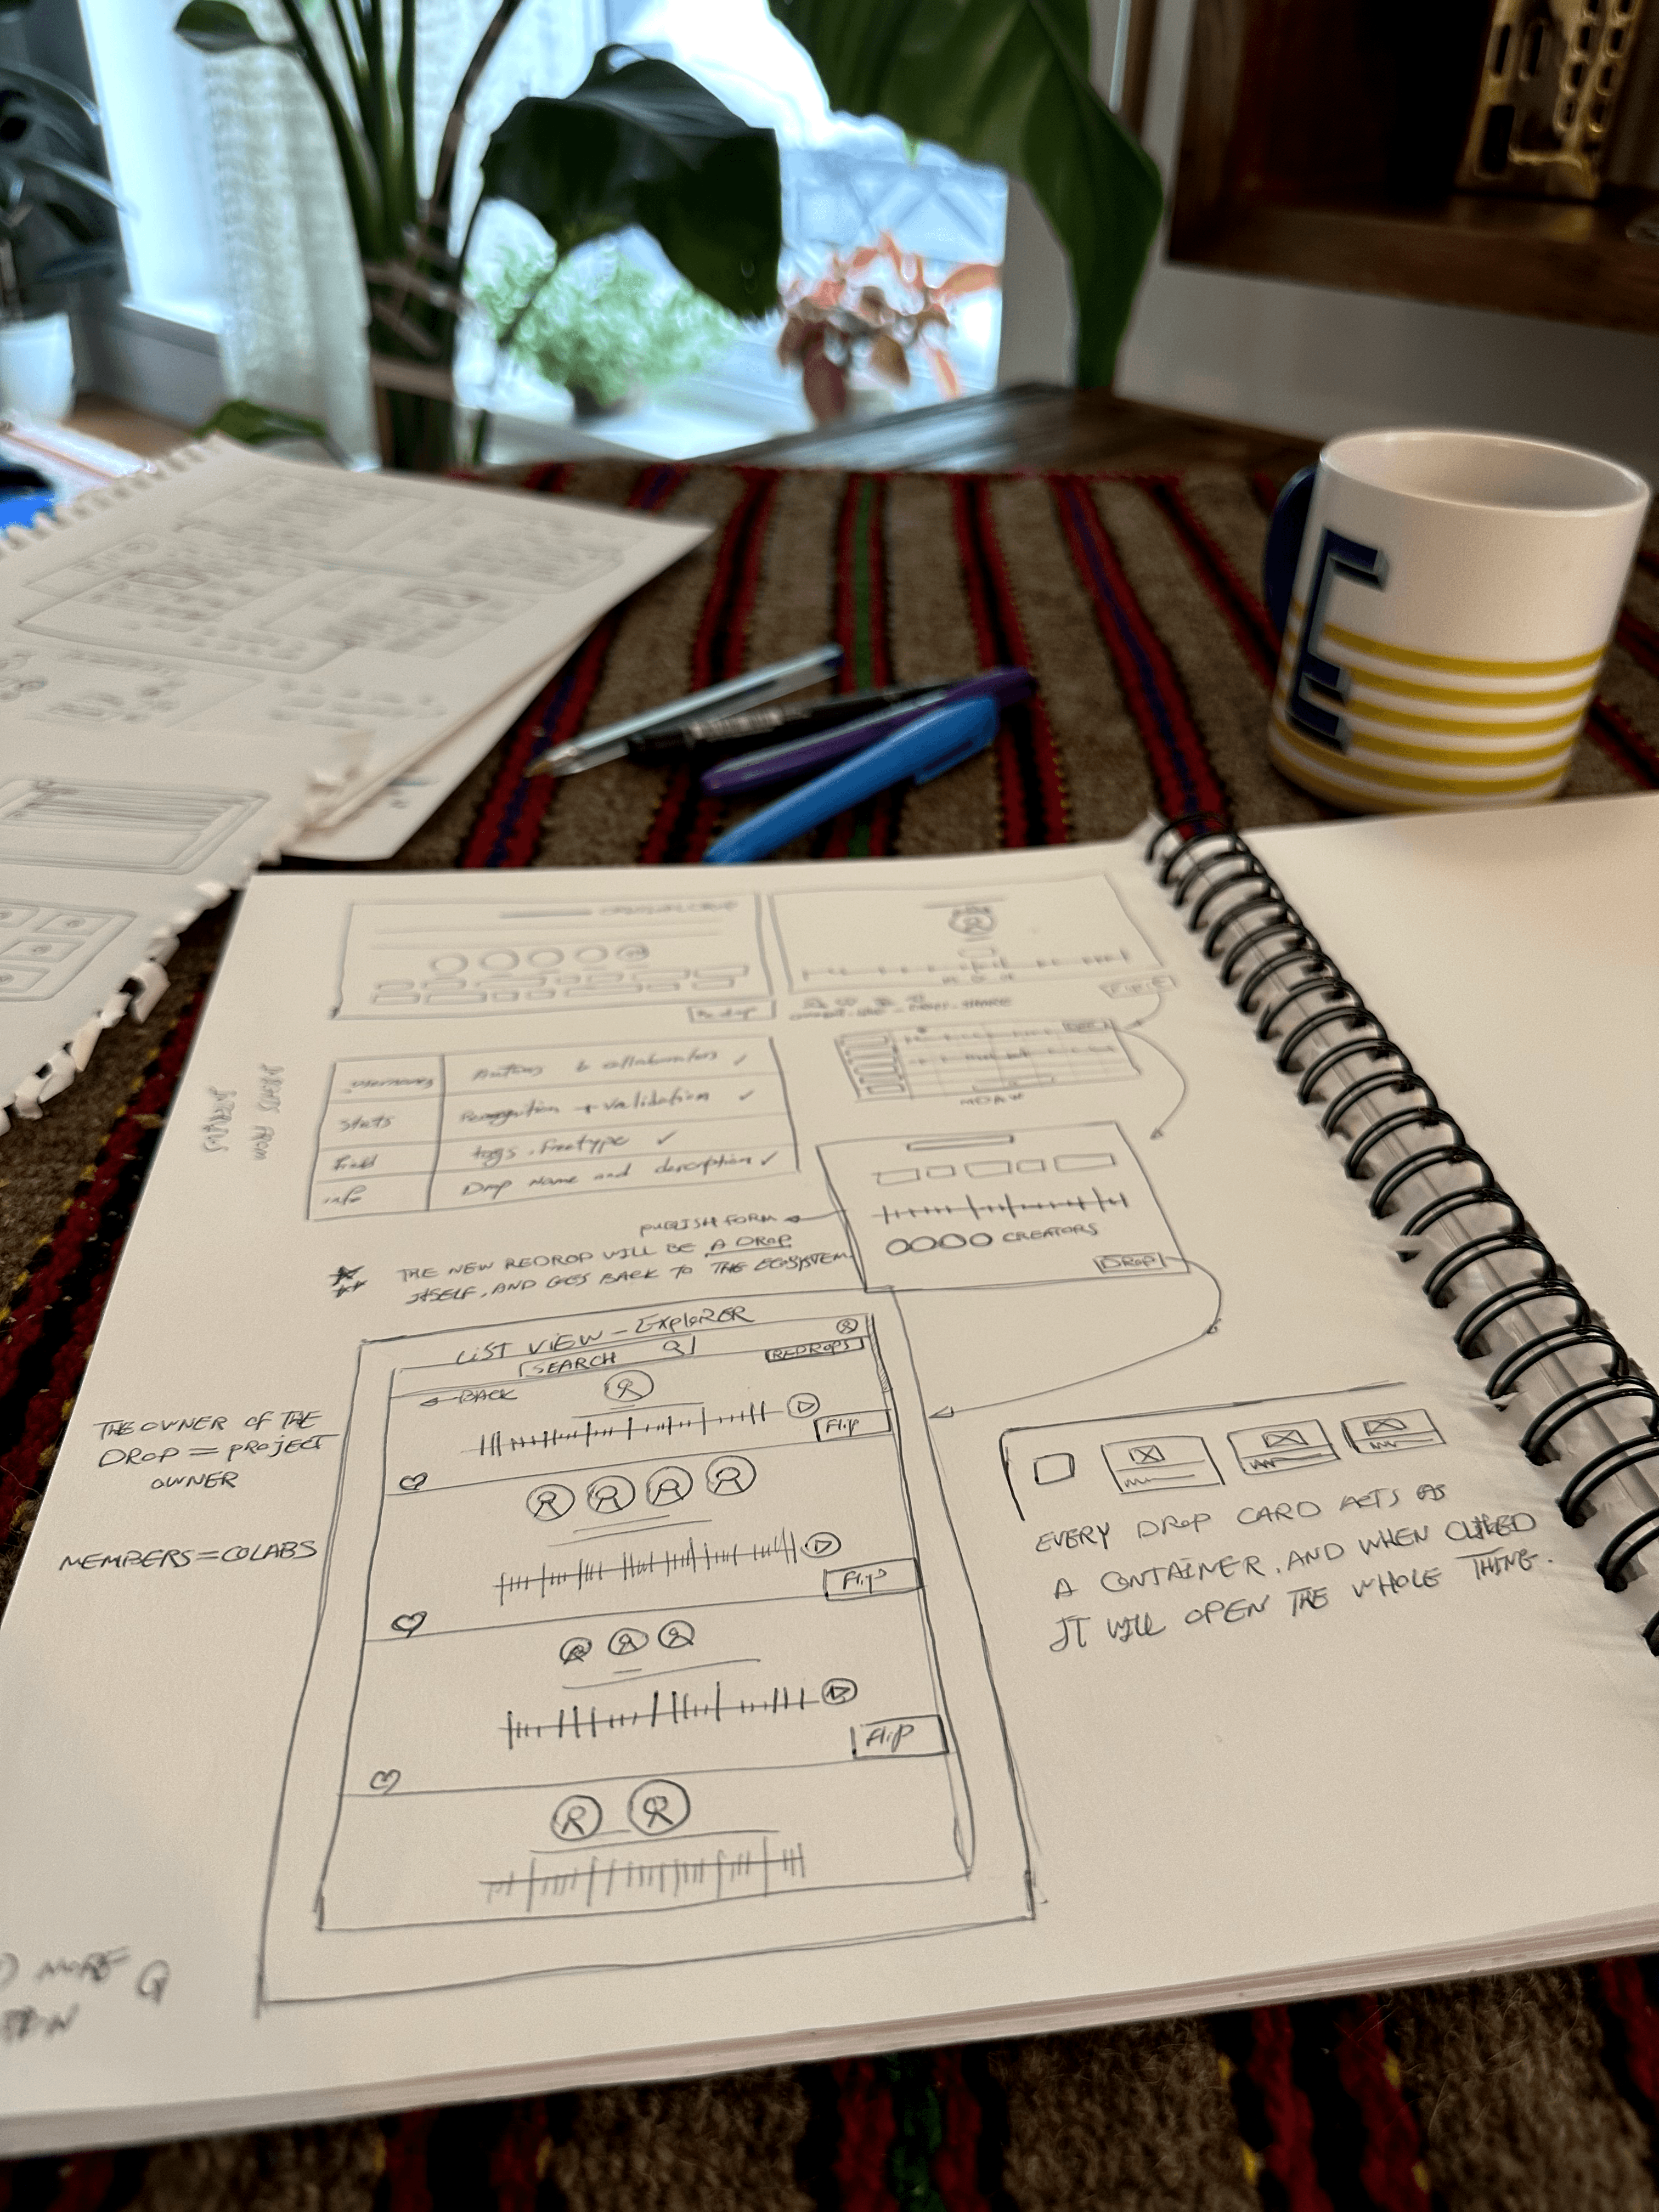 E
Redrop
SHARE
FLIP
usernames Authors & collaborators ✓
stats Recognition + validation ✓
Field tags. Freetype ✓
info Drop Name and description ✓
MDAW
PUBLISH FORM
THE NEW REDROP WILL BE A DROP
ITSELF, AND GOES BACK TO THE ECOSYSTEM
CREATORS
DROP
LIST VIEW - ExploRER
SEARCH
REDROPS
BACK
Flip
Flip
Flip
THE OWNER OF THE
DROP = PROJECT
OWNER
MEMBERS = COLABS
EVERY DROP CARD ACTS AS
A CONTAINER, AND WHEN CLIKED
IT WILL OPEN THE WHOLE THING.
MORE